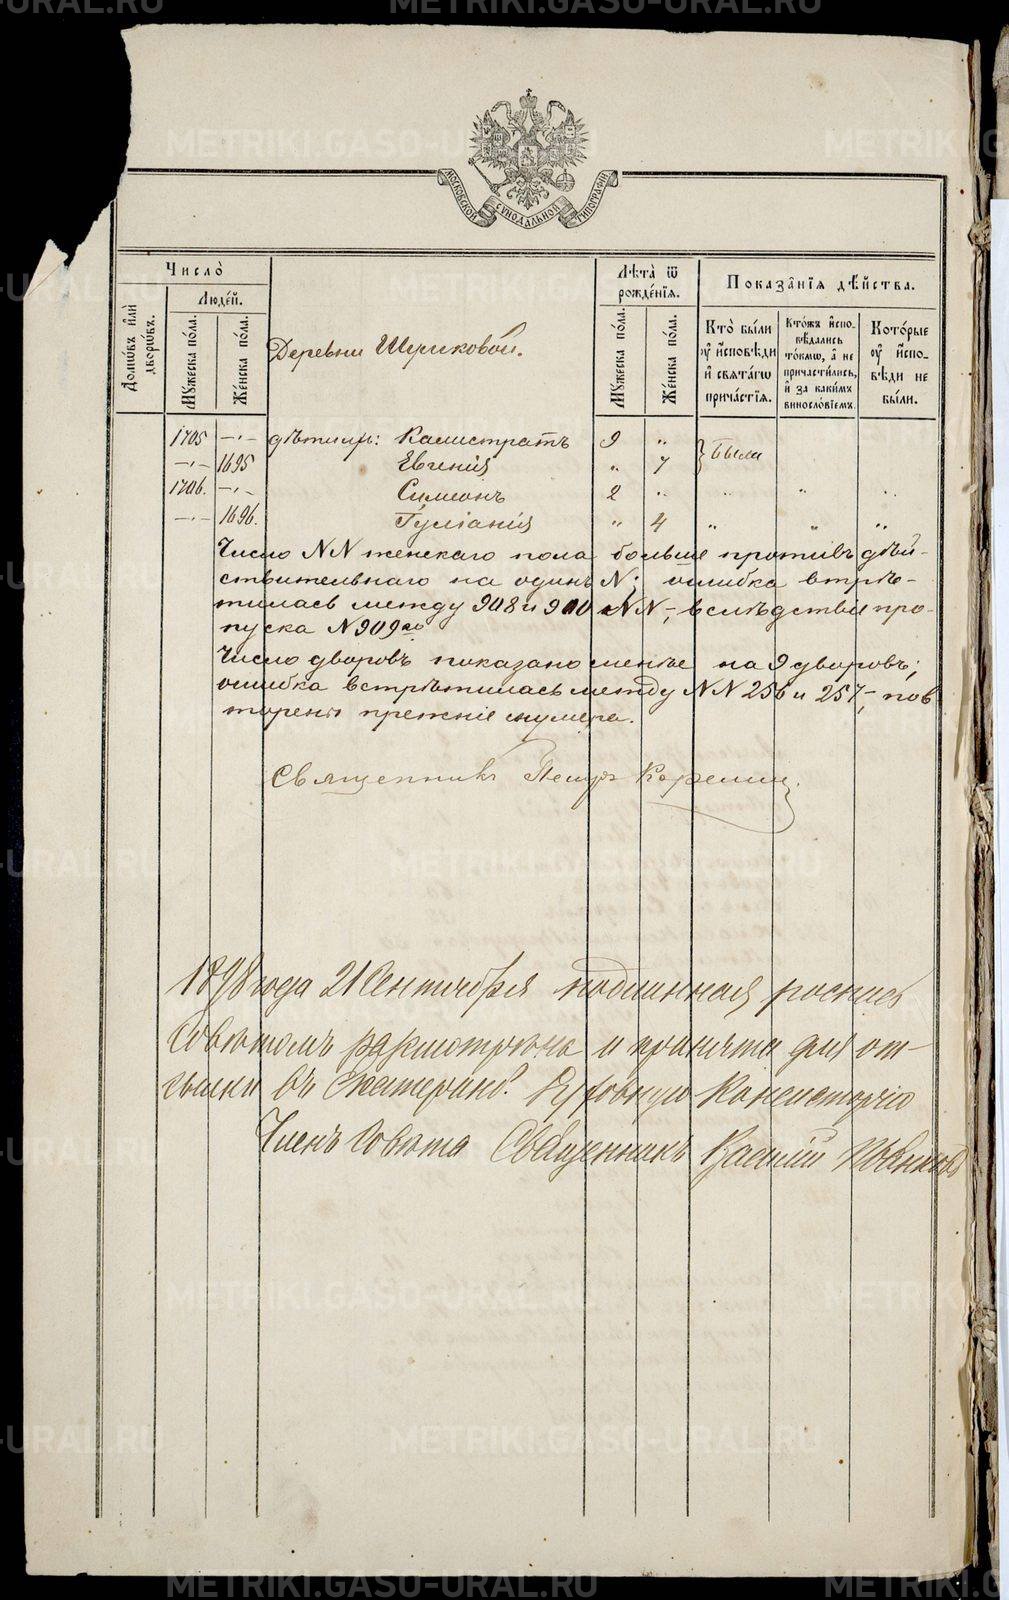 METRIKI.GASO-URAL.RU
МОСКОВСКОЙ СѴНОДАЛЬНОЙ ТИПОГРАФІИ
Число̀
Домѡ́въ и҆лѝ дворѡ́въ.
Люде́й.
Мꙋ́жеска по́ла.
Же́нска по́ла.
Деревни Шуриковой.
Лѣ́та ѿ рожде́нїѧ.
Мꙋ́жеска по́ла.
Же́нска по́ла.
Показа̑нїѧ дѣ́йства.
Кто̀ бы́ли ᲂу҆ и҆́сповѣди и҆ свѧта́гѡ прича́стїѧ.
Кто́жъ и҆спо-
вѣ́дались
то́кмѡ, а҆ не
причасти́лись,
и҆ за каки́мъ
виносло́вїемъ.
Кото́рые
ᲂу҆ и҆́спо-
вѣди не
бы́ли.
1705 —„— дѣти ихъ: Калистратъ 9 „ } были
—„— 1695 Евгенія „ 7
1706. —„— Симеонъ 2 „ „ „ „
—„— 1696. Іуліанія „ 4 „ „ „
Число NN женскаго пола больше противъ дѣй-
ствительнаго на одинъ N; ошибка встрѣ-
тилась между 908 и 910 NN-, вслѣдствіе про-
пуска N 909го
Число дворовъ показано менѣе на 9 дворовъ;
ошибка встрѣтилась между NN 256 и 257-, пов
торены прежніе нумера.
Священникъ Петръ
1898 года 21 Сентября подлинная роспись
Совѣтомъ разсмотрѣна и принята для от-
сылки въ Екатеринб. Духовную Консисторію
Членъ Совѣта Священникъ Василій Иванковъ